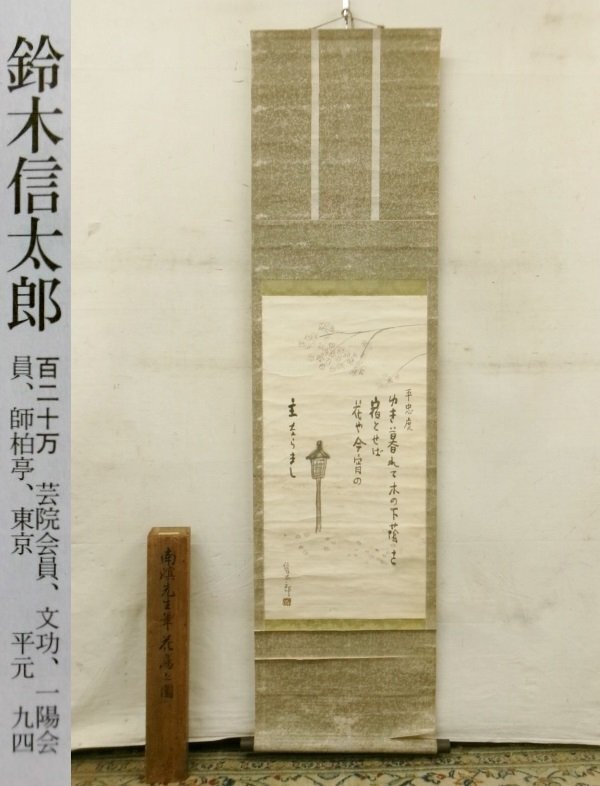 鈴木信太郎
百二十万　芸院会員、文功、一陽会
員、師柏亭、東京　　平元　九四
平忠度
ゆき暮れて木の下蔭を
宿とせば
花や今宵の
主ならまし
信太郎